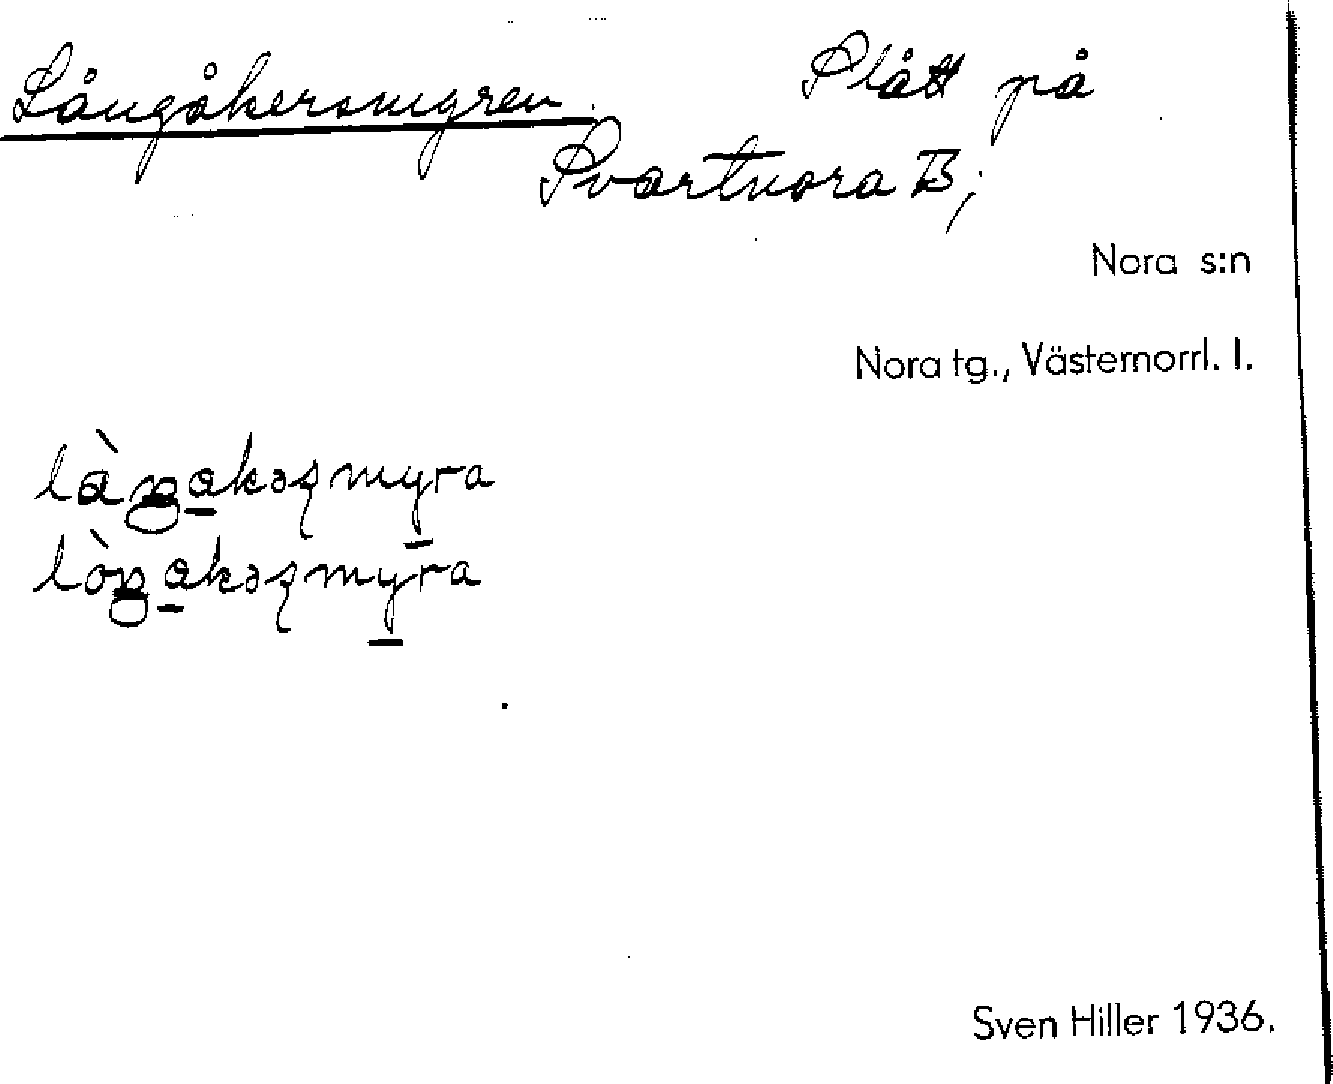 Långåkersmyren. Slått på
Svartnora B;
Nora s:n
Nora tg., Västernorrl. l.
Sven Hiller 1936.